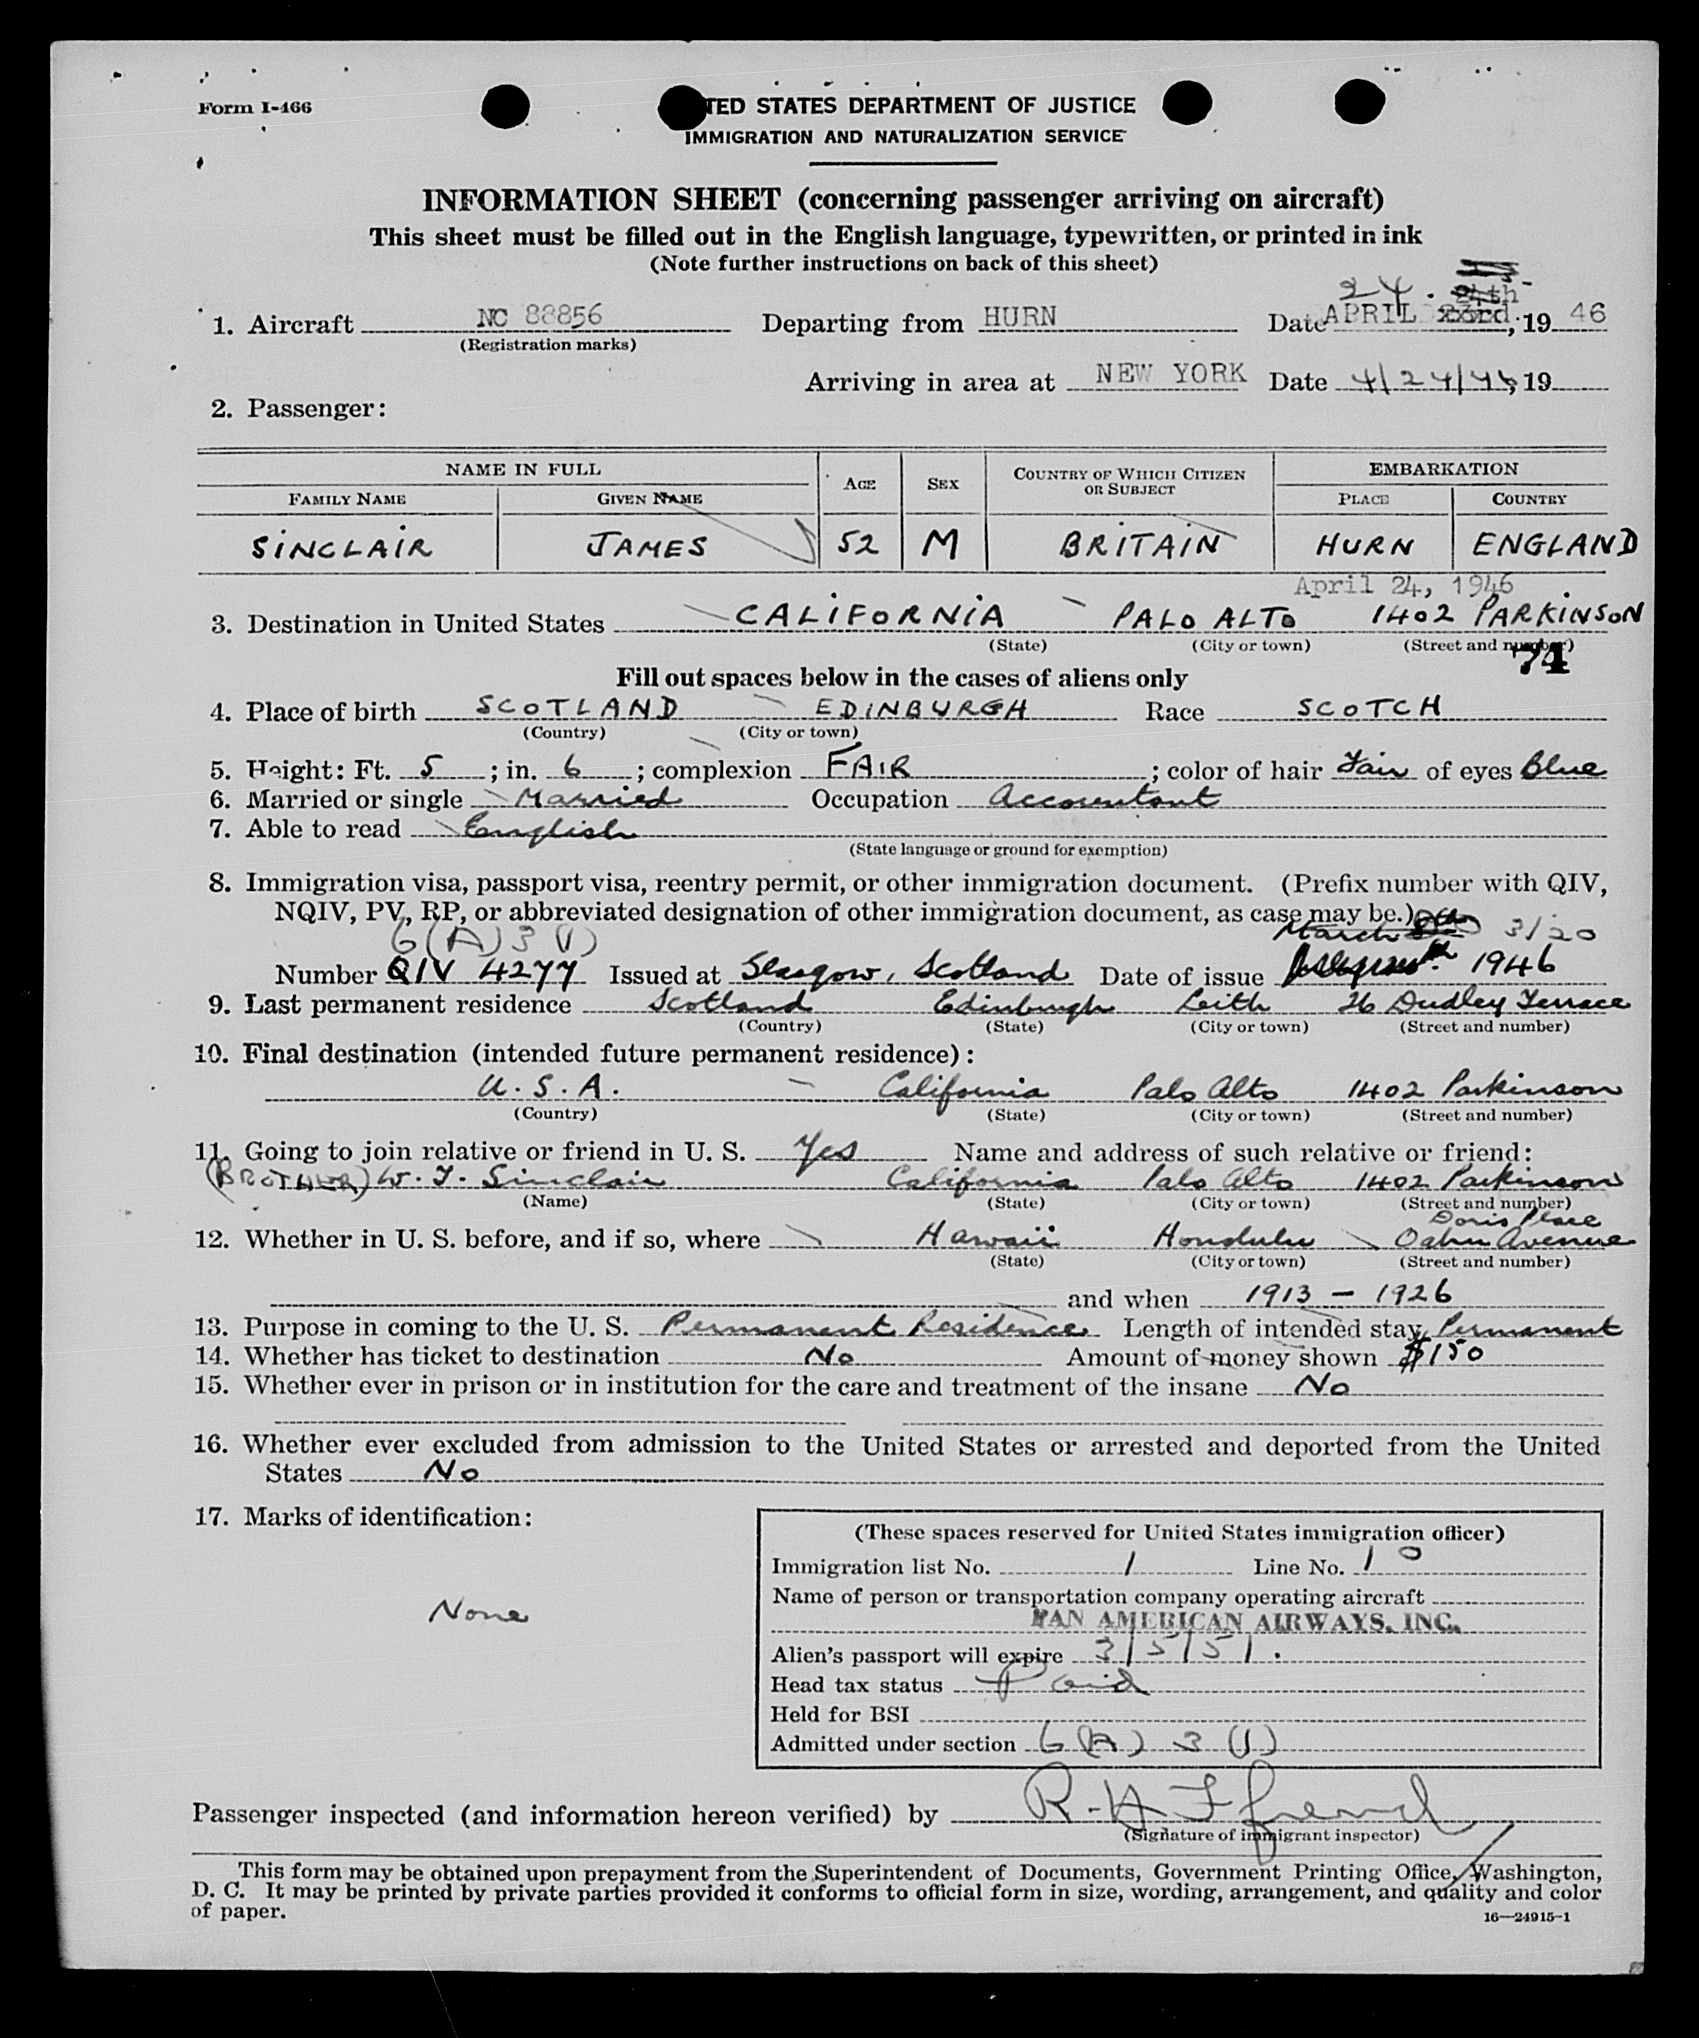 Form I-466
TED STATES DEPARTMENT OF JUSTICE
IMMIGRATION AND NATURALIZATION SERVICE
INFORMATION SHEET (concerning passenger arriving on aircraft)
This sheet must be filled out in the English language, typewritten, or printed in ink
(Note further instructions on back of this sheet)
24.
24th
1. Aircraft NC 88856 Departing from HURN Date APRIL 23rd, 19 46
(Registration marks)
Arriving in area at NEW YORK Date 4/24/46, 19
2. Passenger:
NAME IN FULL AGE SEX COUNTRY OF WHICH CITIZEN OR SUBJECT EMBARKATION
FAMILY NAME GIVEN NAME PLACE COUNTRY
SINCLAIR JAMES 52 M BRITAIN HURN ENGLAND
April 24, 1946
3. Destination in United States CALIFORNIA PALO ALTO 1402 PARKINSON
(State) (City or town) (Street and number)
74
Fill out spaces below in the cases of aliens only
4. Place of birth SCOTLAND EDINBURGH Race SCOTCH
(Country) (City or town)
5. Height: Ft. 5; in. 6; complexion FAIR; color of hair Fair of eyes Blue
6. Married or single Married Occupation Accountant
7. Able to read English
(State language or ground for exemption)
8. Immigration visa, passport visa, reentry permit, or other immigration document. (Prefix number with QIV,
NQIV, PV, RP, or abbreviated designation of other immigration document, as case may be.)
6(A)3(1) March 3/20
Number QIV 4277 Issued at Glasgow, Scotland Date of issue 1946
9. Last permanent residence Scotland Edinburgh Leith 26 Dudley Terrace
(Country) (State) (City or town) (Street and number)
10. Final destination (intended future permanent residence):
U.S.A. California Palo Alto 1402 Parkinson
(Country) (State) (City or town) (Street and number)
11. Going to join relative or friend in U. S. Yes Name and address of such relative or friend:
(BROTHER) W. J. Sinclair California Palo Alto 1402 Parkinson
(Name) (State) (City or town) (Street and number)
Doris Place
12. Whether in U. S. before, and if so, where Hawaii Honolulu Oahu Avenue
(State) (City or town) (Street and number)
and when 1913 - 1926
13. Purpose in coming to the U. S. Permanent Residence Length of intended stay Permanent
14. Whether has ticket to destination No Amount of money shown $150
15. Whether ever in prison or in institution for the care and treatment of the insane No
16. Whether ever excluded from admission to the United States or arrested and deported from the United
States No
17. Marks of identification:
None
(These spaces reserved for United States immigration officer)
Immigration list No. 1 Line No. 10
Name of person or transportation company operating aircraft
PAN AMERICAN AIRWAYS, INC.
Alien's passport will expire 3/5/51.
Head tax status Paid
Held for BSI
Admitted under section 6(A) 3 (1)
Passenger inspected (and information hereon verified) by
(Signature of immigrant inspector)
This form may be obtained upon prepayment from the Superintendent of Documents, Government Printing Office, Washington,
D. C. It may be printed by private parties provided it conforms to official form in size, wording, arrangement, and quality and color
of paper.
16—24915-1